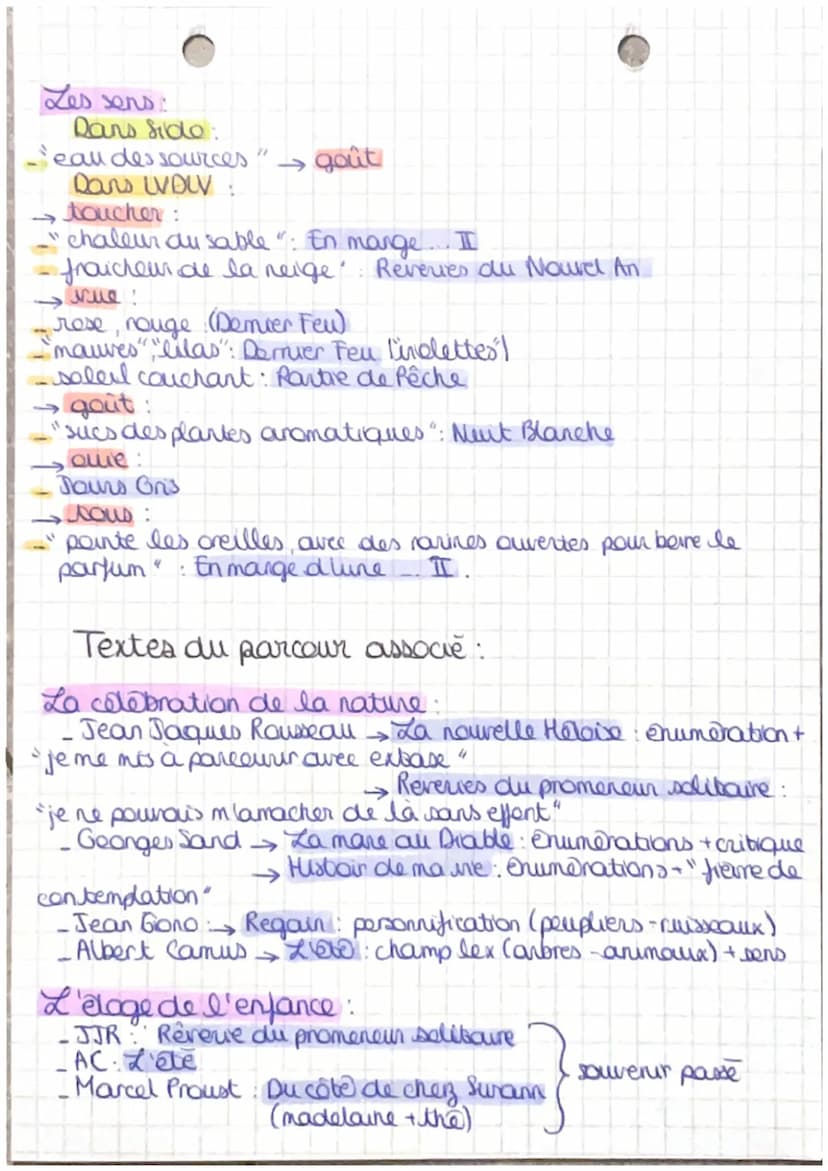 Les sens :
Dans Sido :
- "eau des sources" → goût
Dans LVDLV :
→ toucher :
- "chaleur du sable" : En marge ... II
- fraicheur de la neige" : Reveries du Nouvel An
→ vue :
- rose, rouge (Dernier Feu)
- "mauves" "lilas" : Dernier Feu ("violettes")
- soleil couchant : Partie de Pêche
→ goût :
- "sucs des plantes aromatiques" : Nuit Blanche
→ ouie :
- Jours Gris
→ tous :
- " pointe les oreilles, avec des narines ouvertes pour boire le
parfum" : En marge d'une ... II.
Textes du parcour associé :
La célébration de la nature :
- Jean Jaques Rousseau → La nouvelle Héloïse : énumération +
"je me mis à parcourir avec extase"
→ Reveries du promeneur solitaire :
"je ne pouvais m'arracher de là sans effort"
- Georges Sand → La mare au Diable : énumérations + critique
→ Histoir de ma vie : énumérations + " fièvre de
contemplation"
- Jean Giono : → Regain : personnification (peupliers - ruisseaux)
- Albert Camus → L'été : champ lex (arbres - animaux) + sens
L'éloge de l'enfance :
- JJR : Rêverie du promeneur solitaire
- AC : L'été
- Marcel Proust : Du côté de chez Swann
(madelaine + thé)
souvenir passé